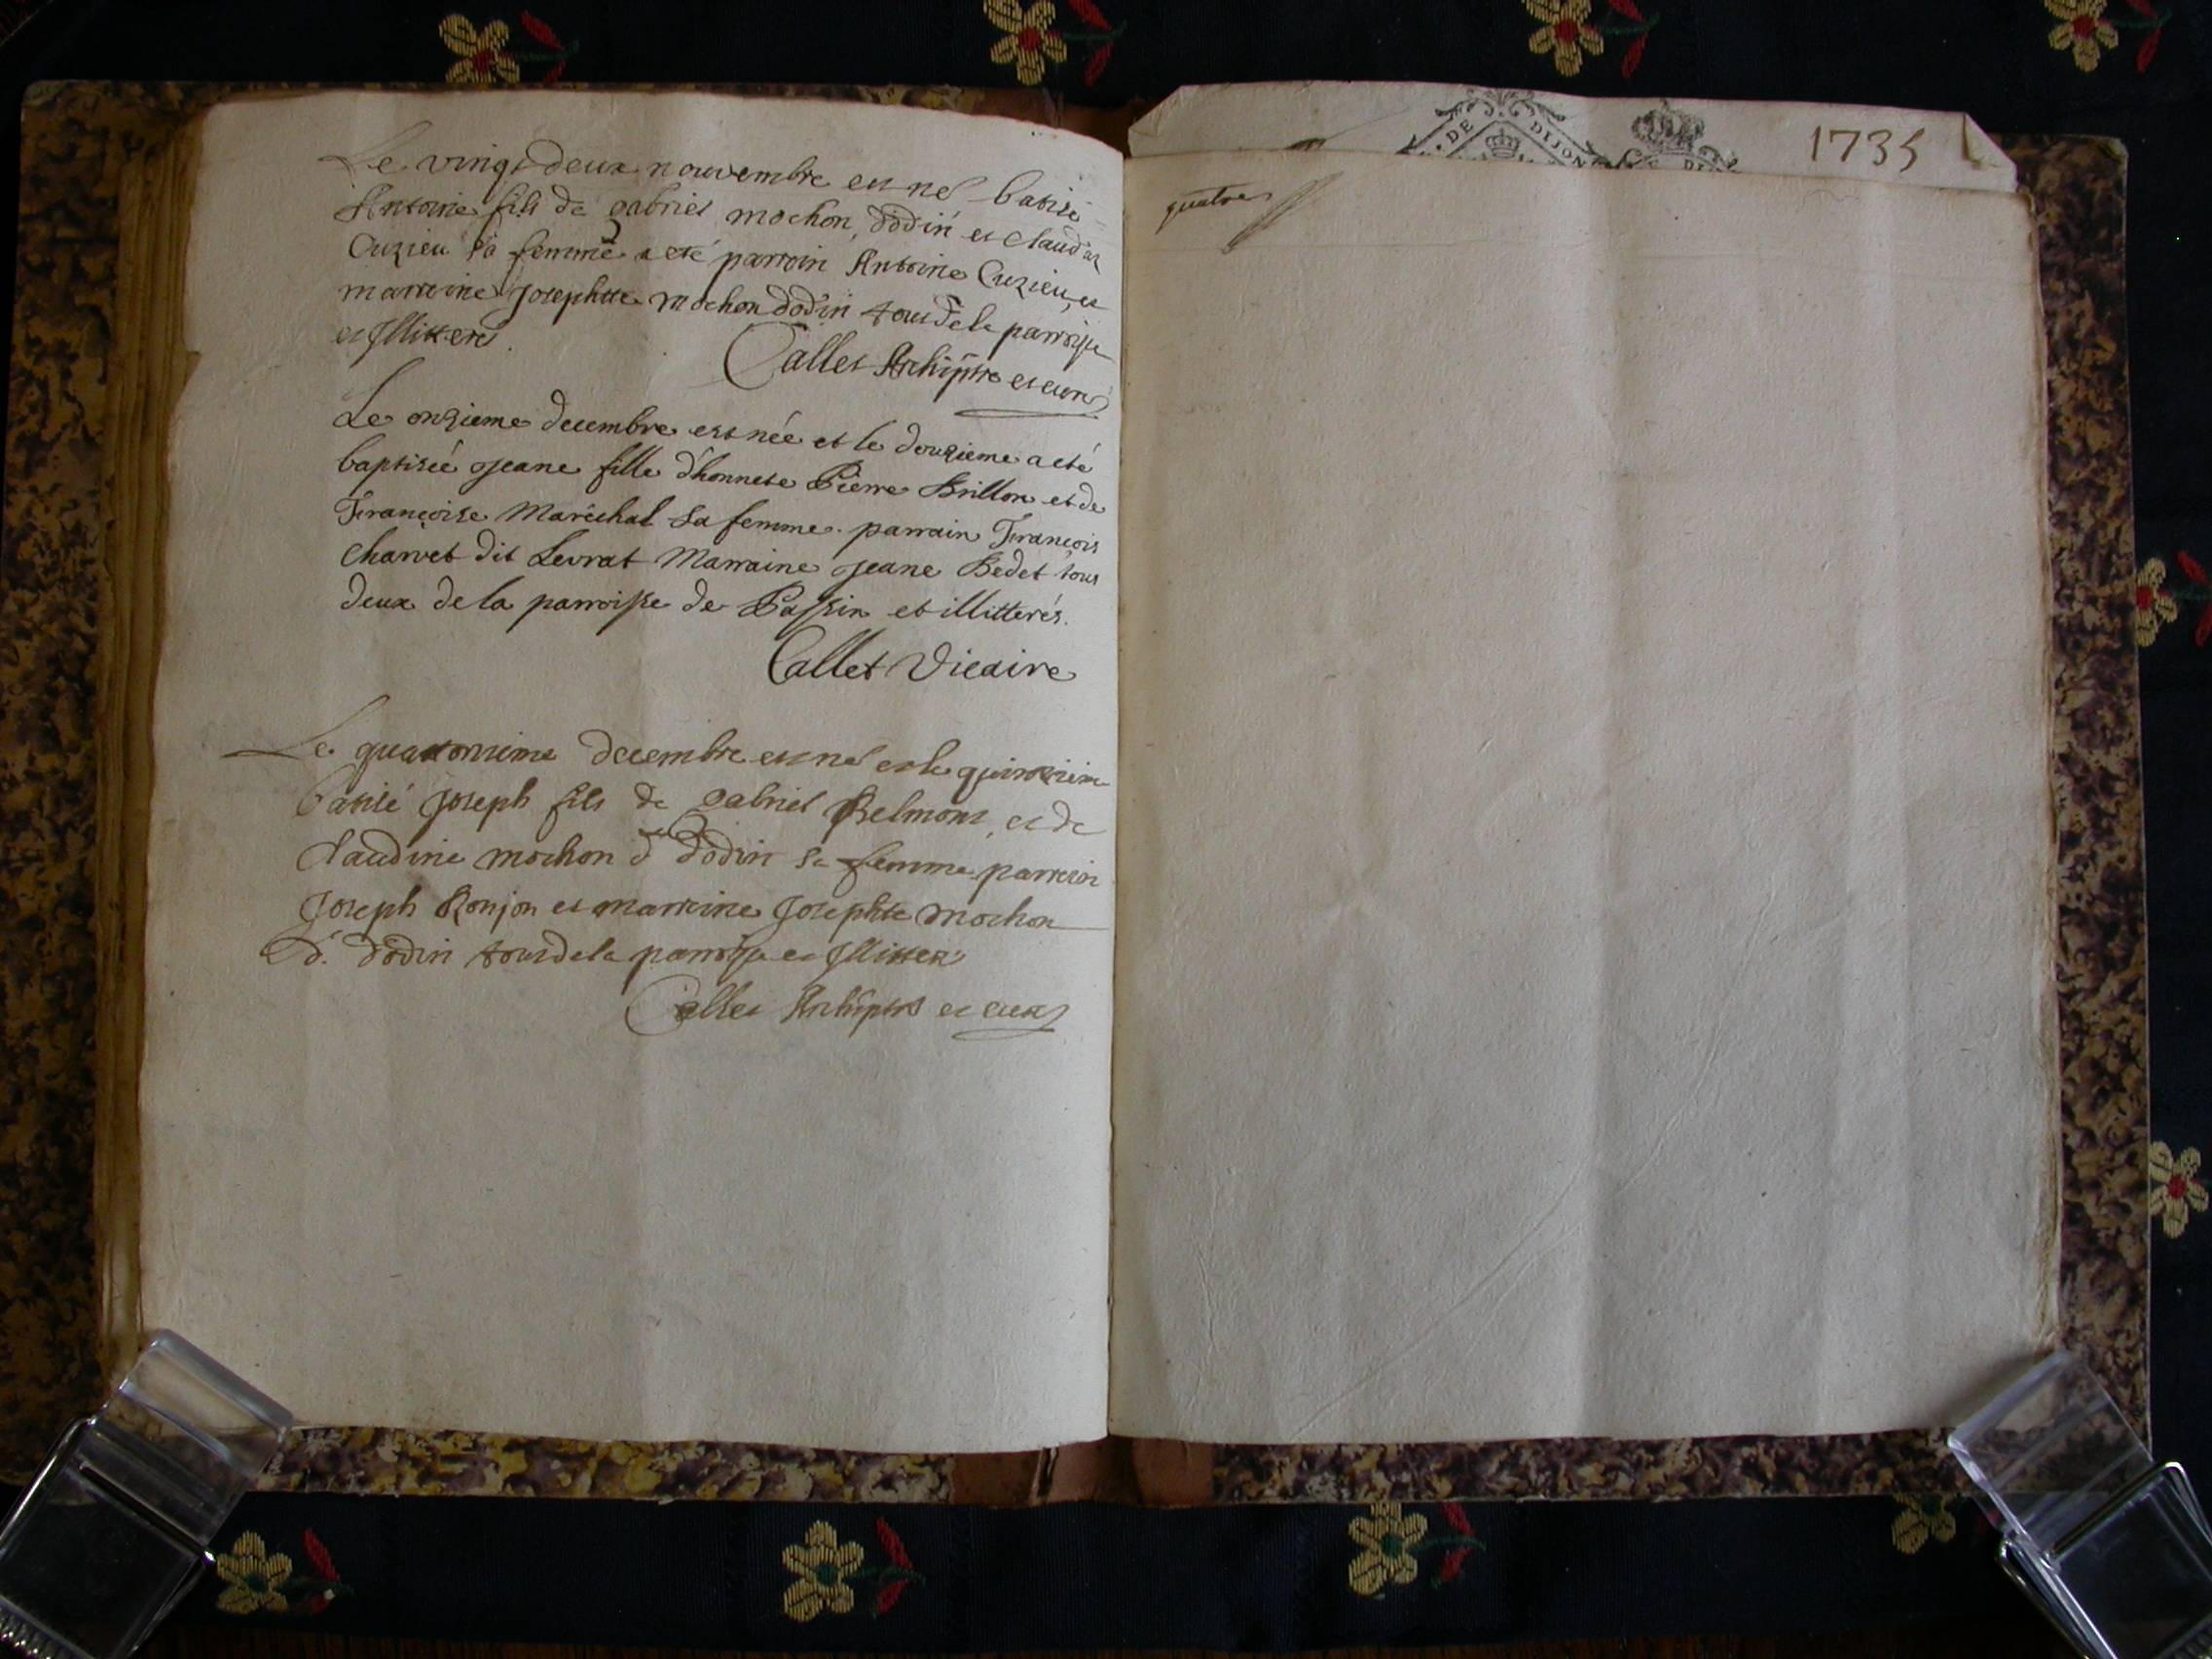 Le vingt deux nouvembre est né batisé
Antoine fils de gabriel mochon, dodin et Claud
Cuzieu sa femme a eté parrein Antoine Cuzieu, et
marreine Josephtte mochon dodin tous de la parroisse
et Jllitterés.
Callet Archiptre et curé
Le onzieme decembre est née et le douzieme a eté
baptisée jeane fille d'honnete Pierre Brillon et de
Françoise Maréchal sa femme. parrain François
Charvet dit Levrat Marraine jeane Bedet tous
deux de la parroisse de Passin et illitterés.
Callet Vicaire
Le quatorzieme decembre est né et le quinzieme
batisé Joseph fils de gabriel Belmont, et de
Claudine mochon d dodin sa femme parrein
Joseph Ronjon et marreine Josephte mochon
d. dodin tous de la parroisse et Jllitterés
Callet Archiptre et curé
DE DIJON
DI
1735
quatre